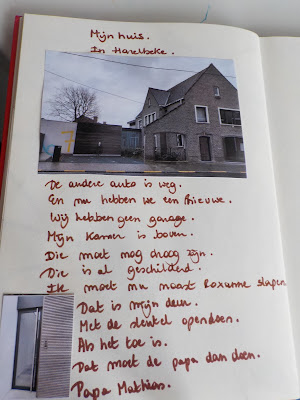 Mijn huis.
In Harelbeke.
De andere auto is weg.
En nu hebben we een Nieuwe.
Wij hebben geen garage.
Mijn Kamer is boven.
Die moet nog droog zijn.
Die is al geschilderd.
Ik moet nu naast Roxanne slapen
Dat is mijn deur.
Met de sleutel opendoen.
Als het toe is.
Dat moet de papa dan doen.
Papa Mathias.